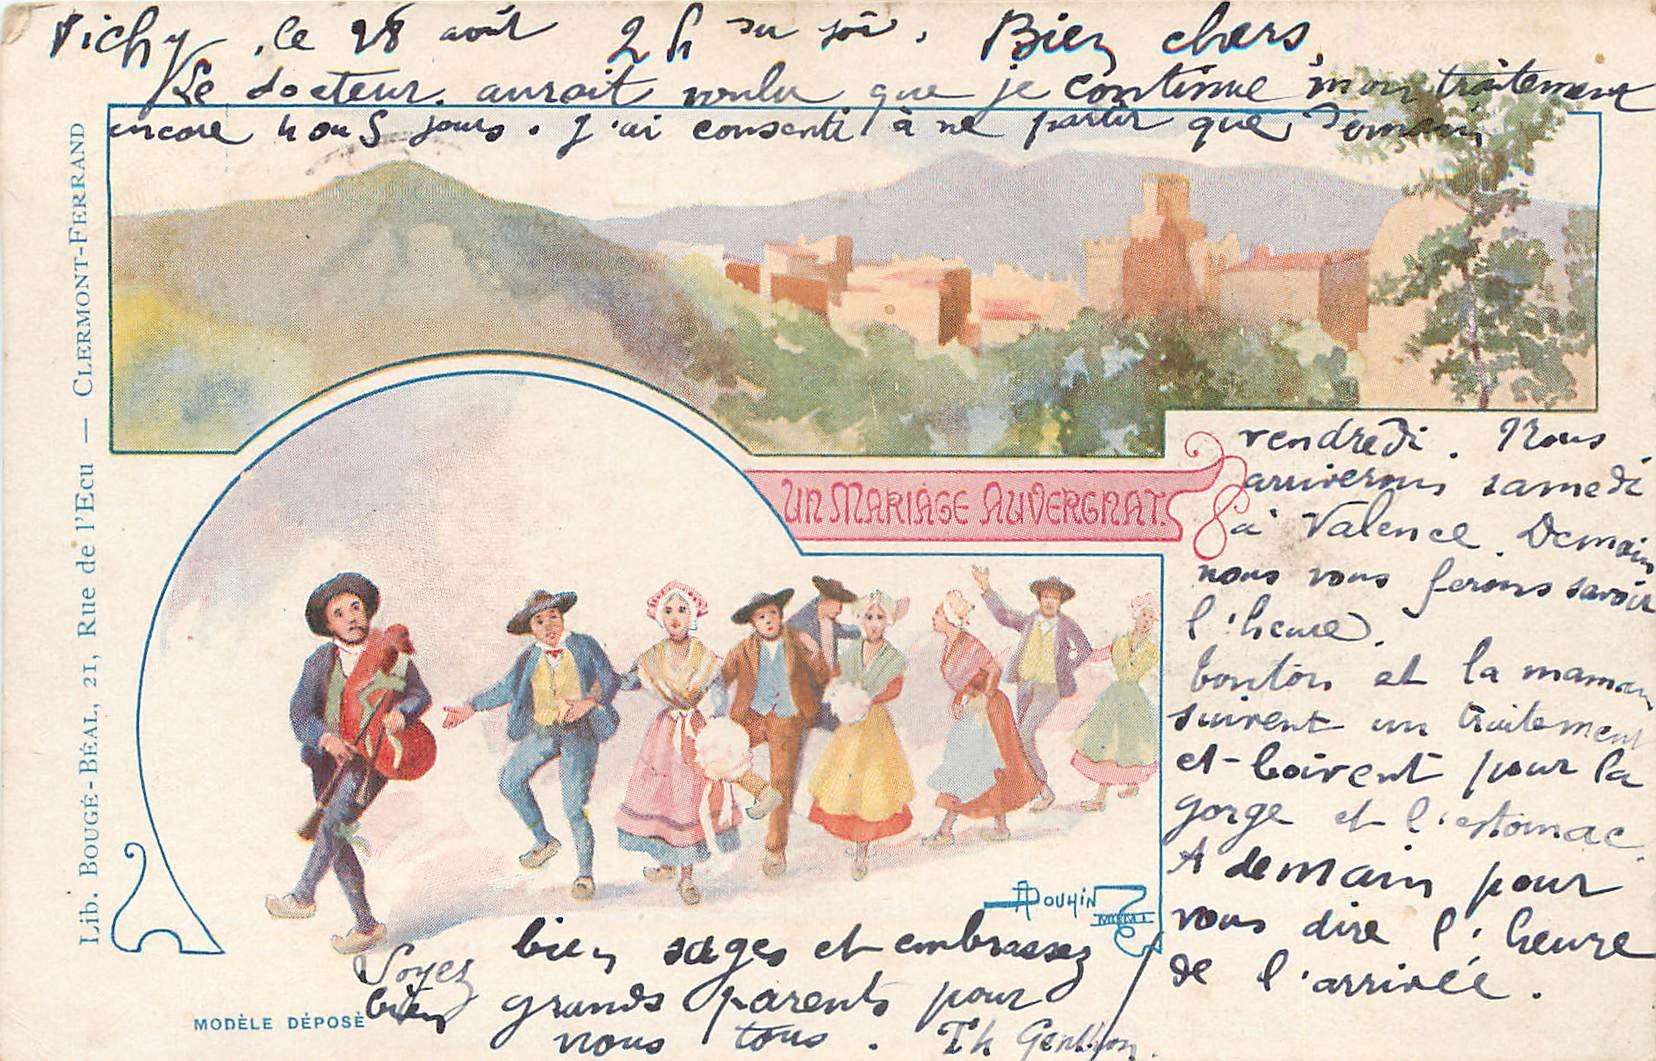 Vichy, le 28 août 2 h du soir. Bien chers,
Le docteur aurait voulu que je continue mon traitement
encore 4 ou 5 jours. J'ai consenti à ne partir que demain
vendredi. Nous
arriverons samedi
à Valence. Demain
nous vous ferons savoir
l'heure.
tonton et la maman
suivent un traitement
et boivent pour la
gorge et l'estomac.
A demain pour
vous dire l'heure
de l'arrivée.
Soyez bien sages et embrassez
bien grands parents pour
nous tous. Th
UN MARIAGE AUVERGNAT.
Lib. BOUGÉ-BÉAL, 21, Rue de l'Ecu — CLERMONT-FERRAND
MODÈLE DÉPOSÉ
A DOUHIN